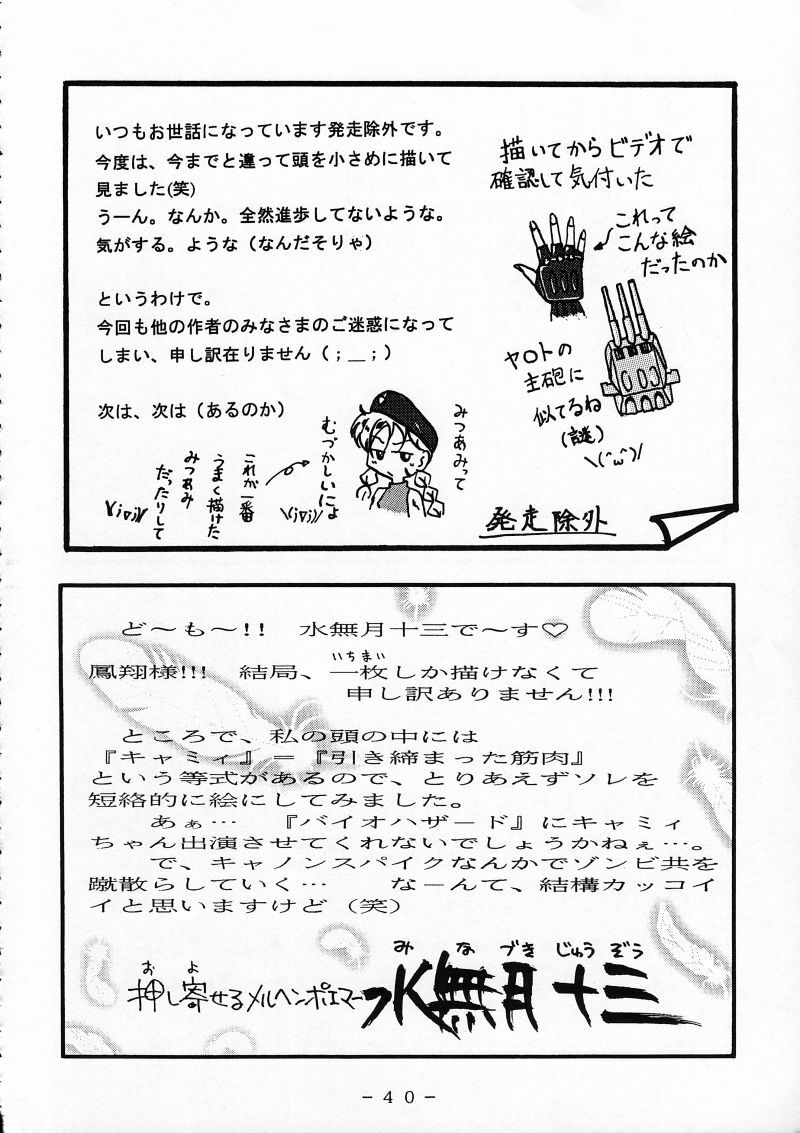 いつもお世話になっています発走除外です。
今度は、今までと違って頭を小さめに描いて
見ました(笑)
うーん。なんか。全然進歩してないような。
気がする。ような（なんだそりゃ）
というわけで。
今回も他の作者のみなさまのご迷惑になって
しまい、申し訳在りません（；＿；）
次は、次は（あるのか）
描いてからビデオで
確認して気付いた
これって
こんな絵
だったのか
ヤロトの
主砲に
似てるね
(謎)
\(^ω^)/
みつあみって
むづかしいによ
\\(;▽;)//
これが一番
うまく描けた
みつあみ
だったりして
発走除外
ど～も～!!　水無月十三で～す♡
いちまい
鳳翔様!!!　結局、一枚しか描けなくて
申し訳ありません!!!
ところで、私の頭の中には
『キャミィ』＝『引き締まった筋肉』
という等式があるので、とりあえずソレを
短絡的に絵にしてみました。
あぁ…　『バイオハザード』にキャミィ
ちゃん出演させてくれないでしょうかねぇ…。
で、キャノンスパイクなんかでゾンビ共を
蹴散らしていく…　なーんて、結構カッコイ
イと思いますけど（笑）
お　よ
押し寄せるメルヘンポエマー
み　な　づき　じゅう　ぞう
水無月十三
- 40 -